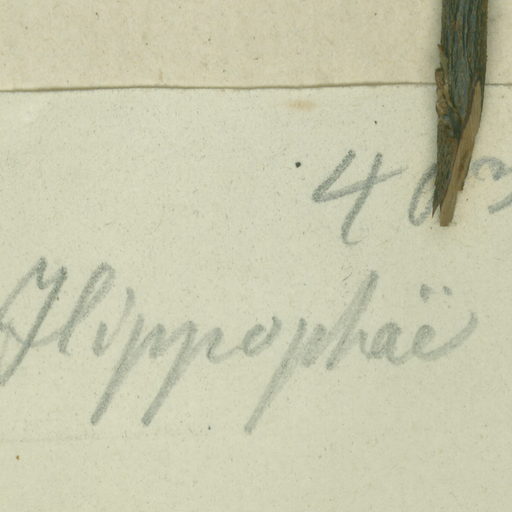 Hippophaë